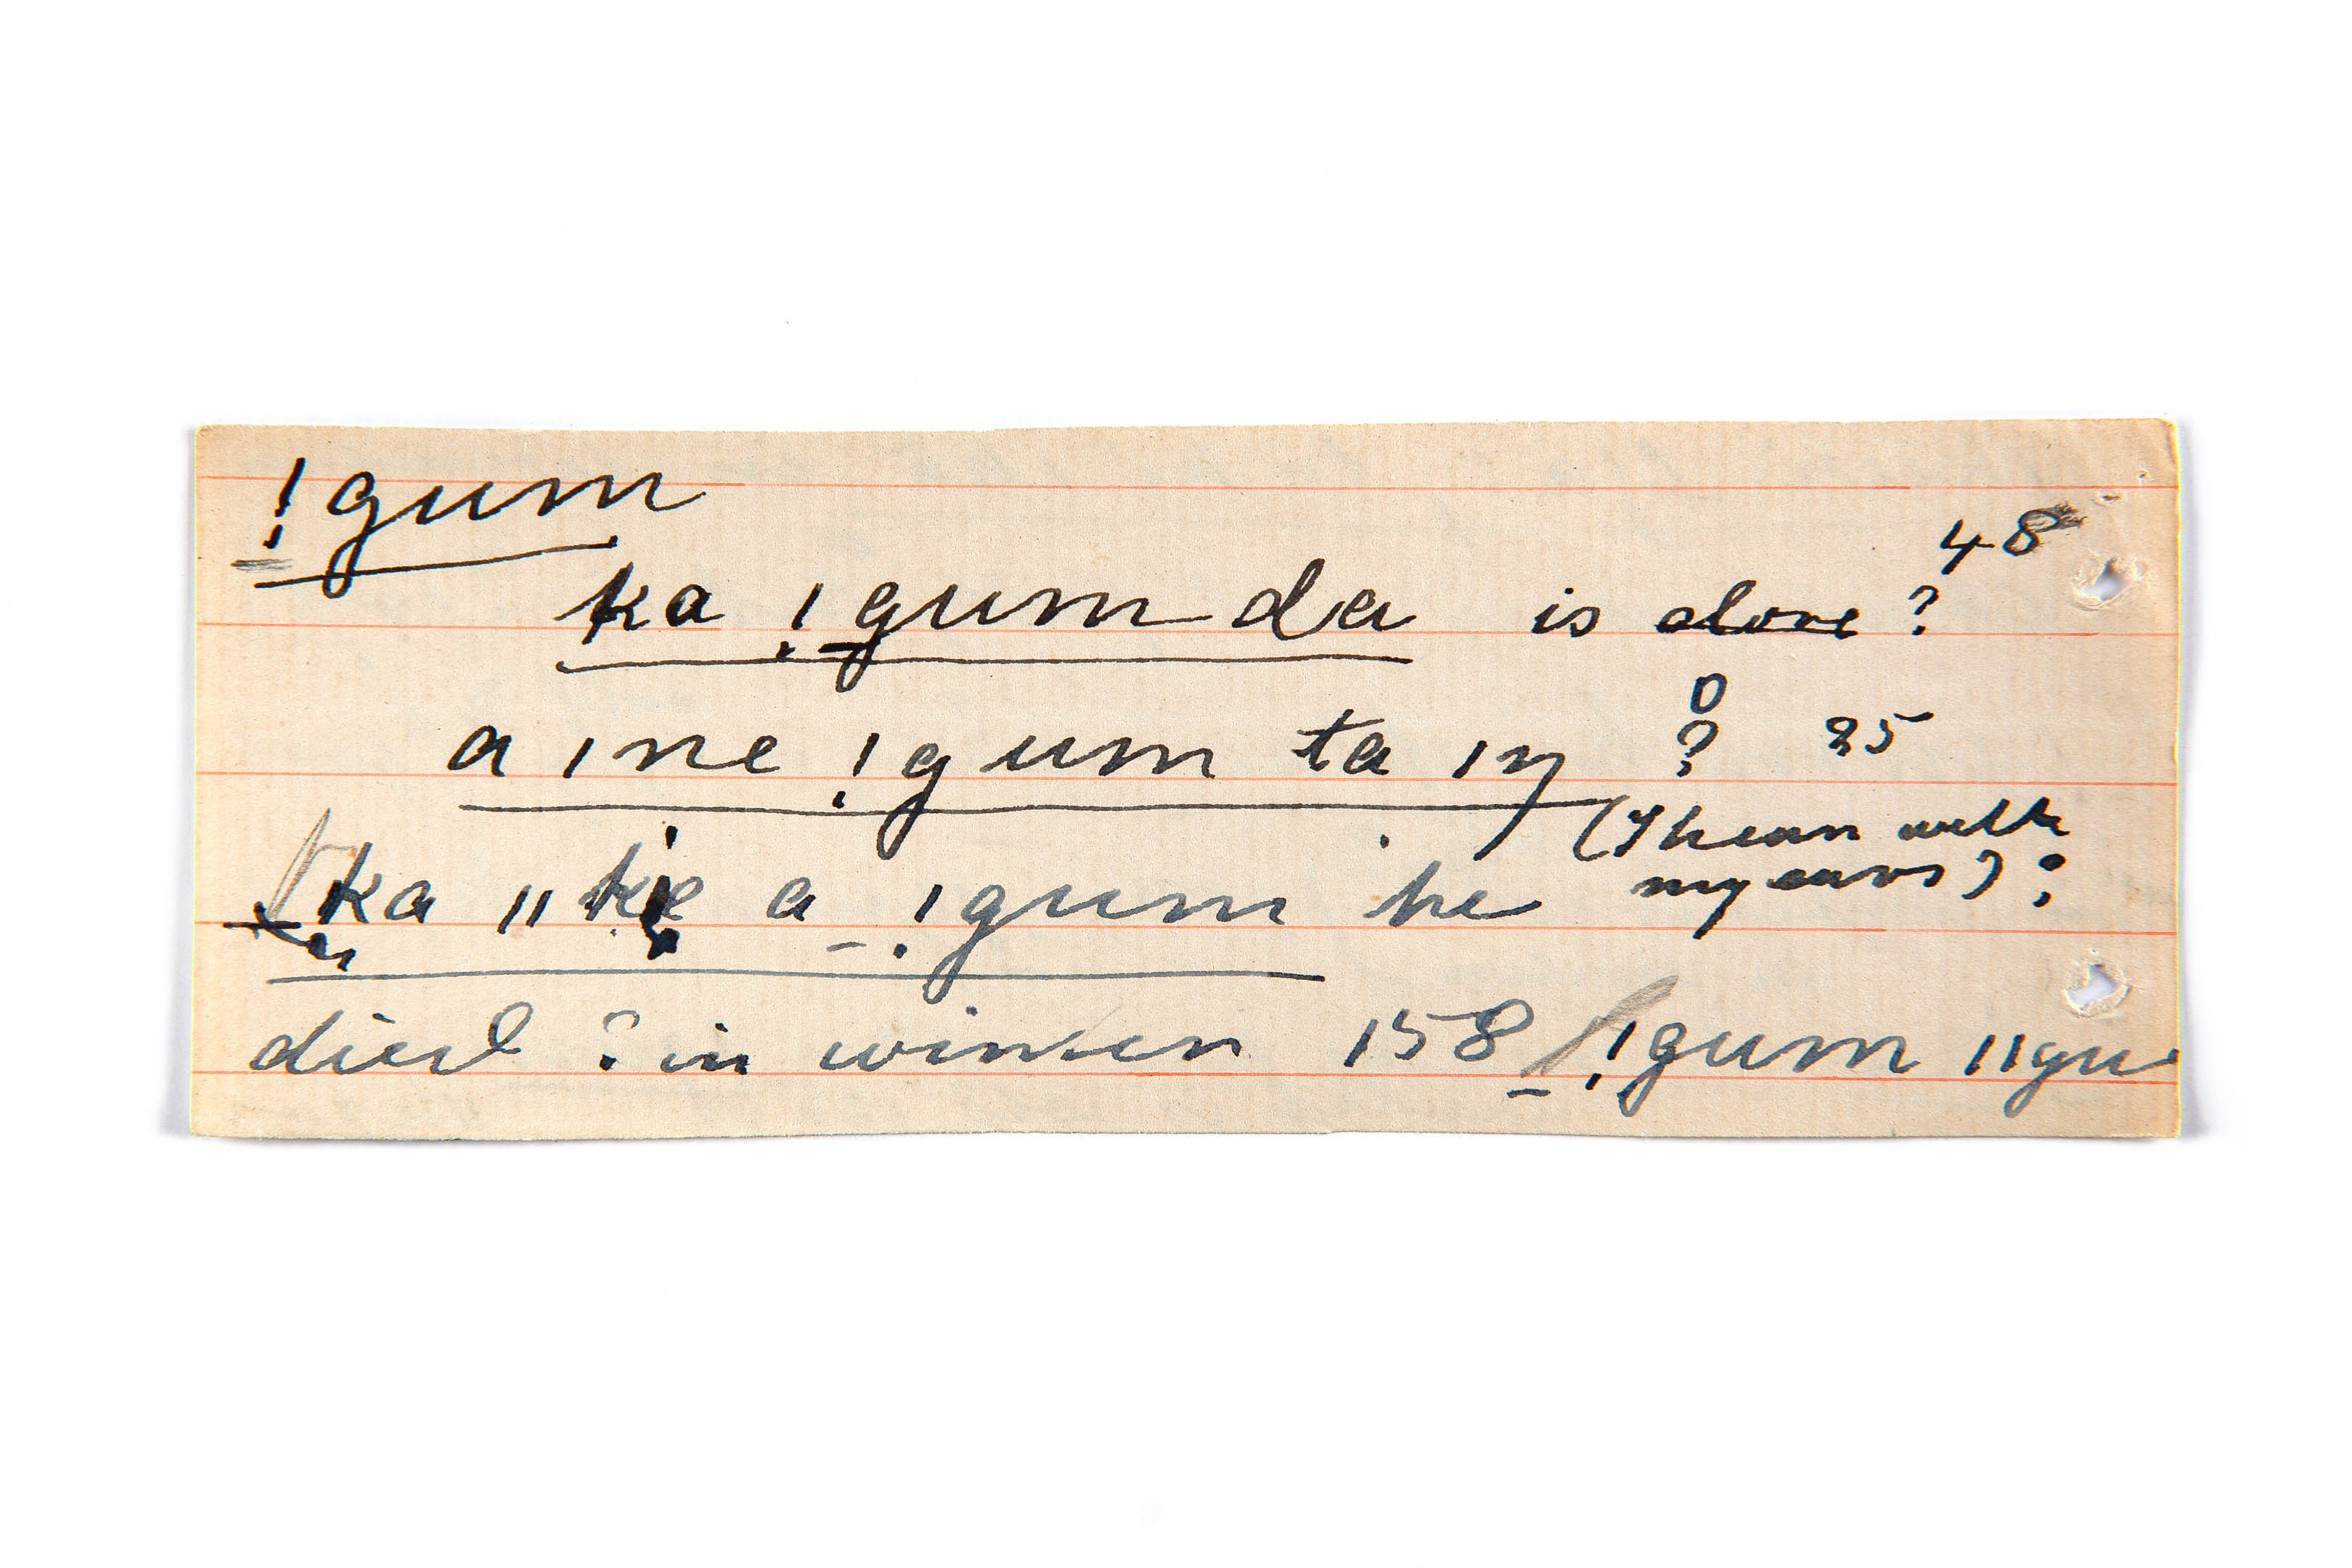 !gum
48
ka !gum da is alone ?
a ı ne !gum ta ıŋ ? 25
(I hear with
ka ıı a !gum he my ears) ;
died ? in winter 158 !gum ııgu